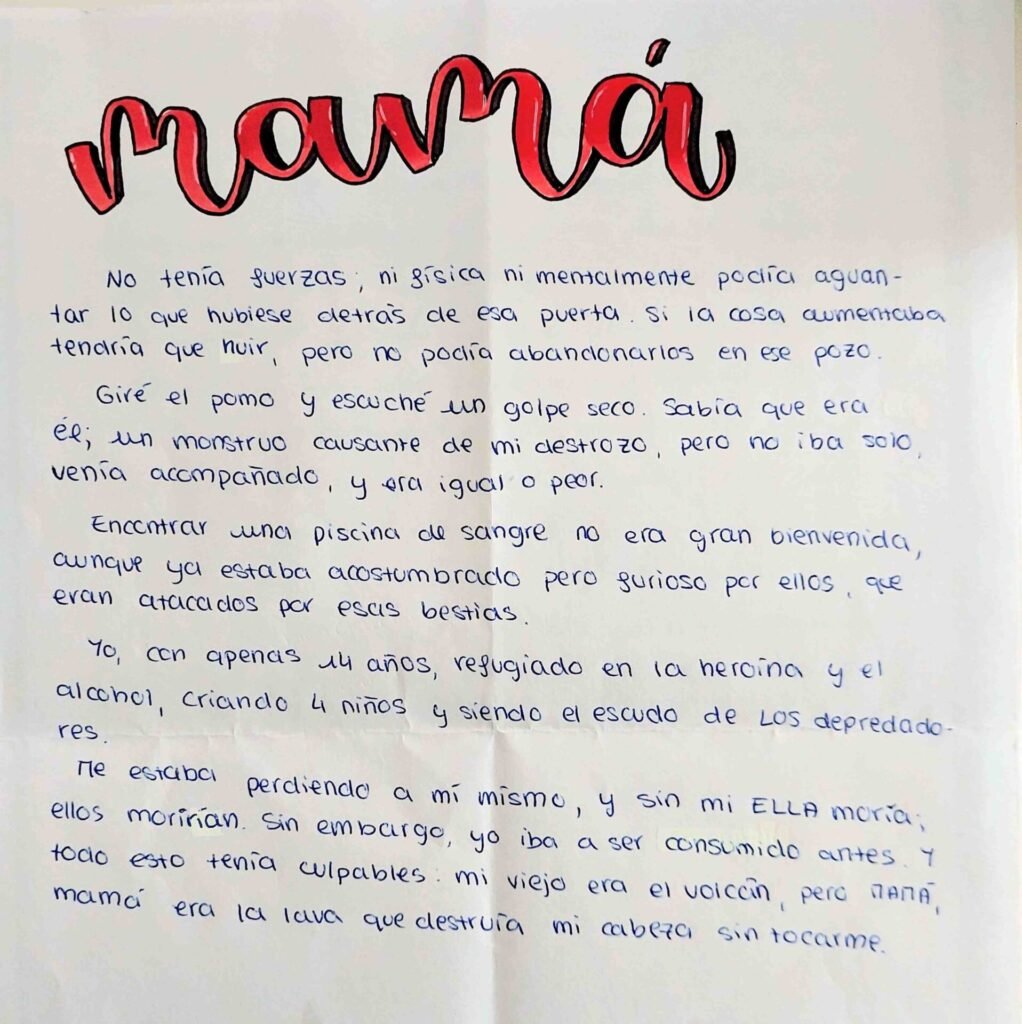 mamá
No tenía fuerzas; ni física ni mentalmente podía aguan-
tar lo que hubiese detrás de esa puerta. Si la cosa aumentaba
tendría que huir, pero no podía abandonarlos en ese pozo.
Giré el pomo y escuché un golpe seco. Sabía que era
él; un monstruo causante de mi destrozo, pero no iba solo,
venía acompañado, y era igual o peor.
Encontrar una piscina de sangre no era gran bienvenida,
aunque ya estaba acostumbrado pero furioso por ellos, que
eran atacados por esas bestias.
Yo, con apenas 14 años, refugiado en la heroína y el
alcohol, criando 4 niños y siendo el escudo de LOS depredado-
res.
Me estaba perdiendo a mí mismo, y sin mi ELLA moría;
ellos morirían. Sin embargo, yo iba a ser consumido antes. Y
todo esto tenía culpables: mi viejo era el volcán, pero MAMÁ,
mamá era la lava que destruía mi cabeza sin tocarme.